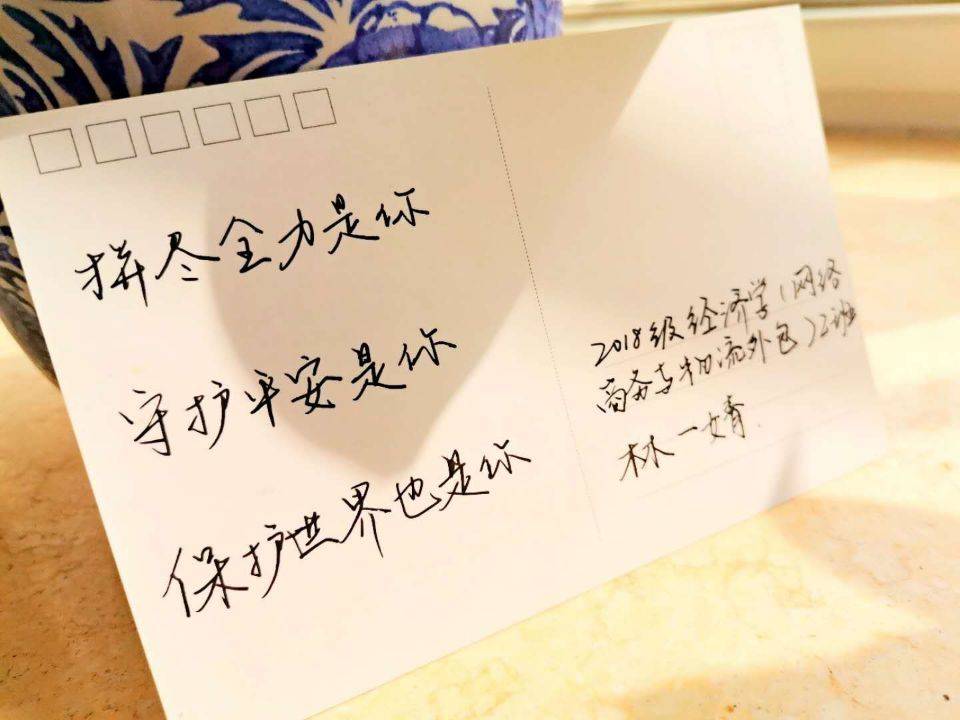 拼尽全力是你
守护平安是你
保护世界也是你
2018级经济学(网络
商务与物流外包)2班
林一婧